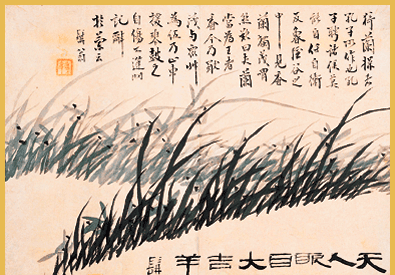 猗蘭操者
孔子所作也孔
子聘諸侯莫
能自任自衛
反魯隱谷之
中見香
蘭獨茂喟
然歎曰夫蘭
當為王者
香今乃
茂與衆艸
為伍乃止車
援琴鼓之
自傷不逢時
託辭
於蘭云
髯翁
天人眼目大吉羊
髯